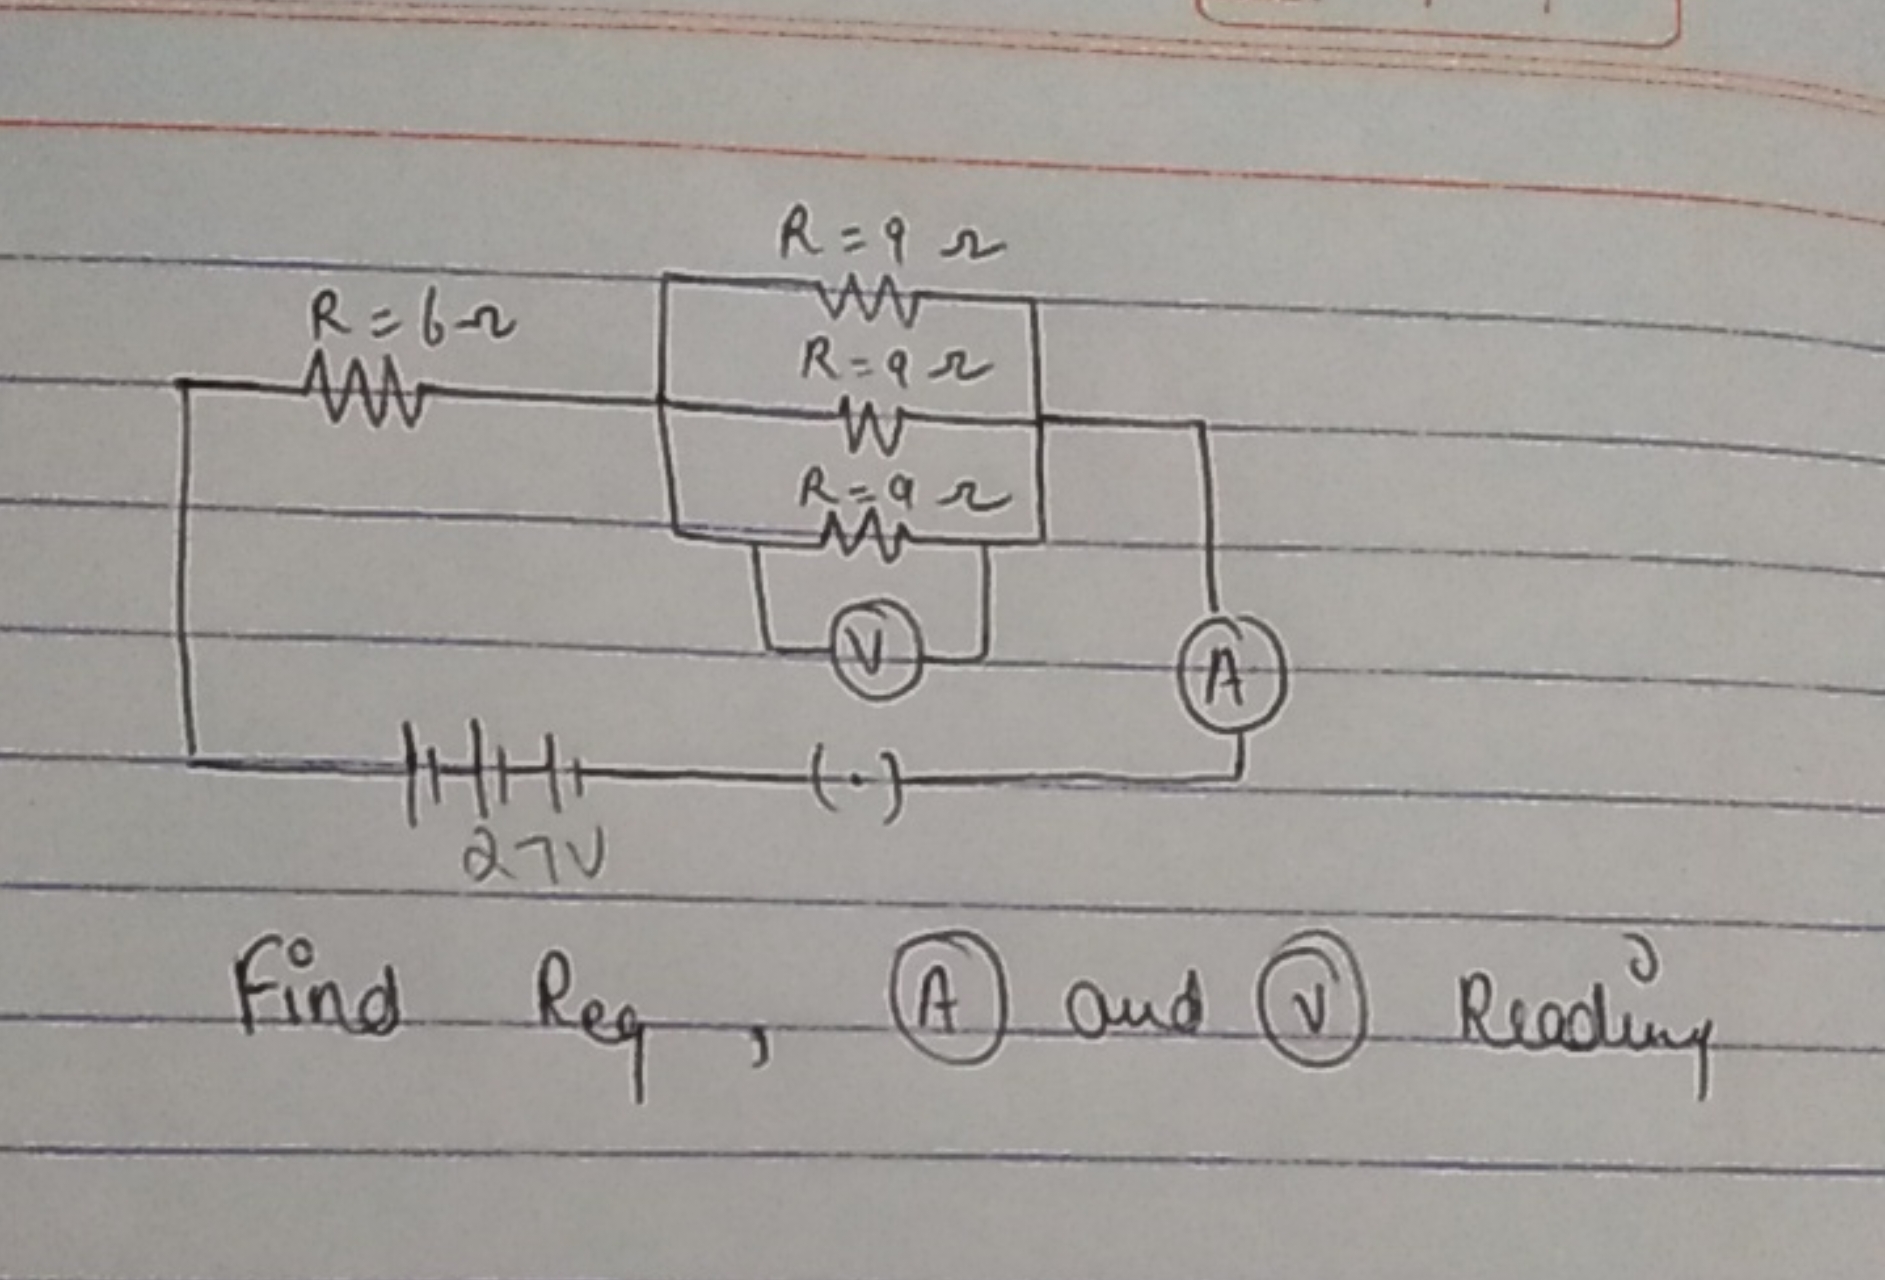 R = 9 Ω
R = 6 Ω
R = 9 Ω
R = 9 Ω
V
A
27V
Find Req, A and V Reading